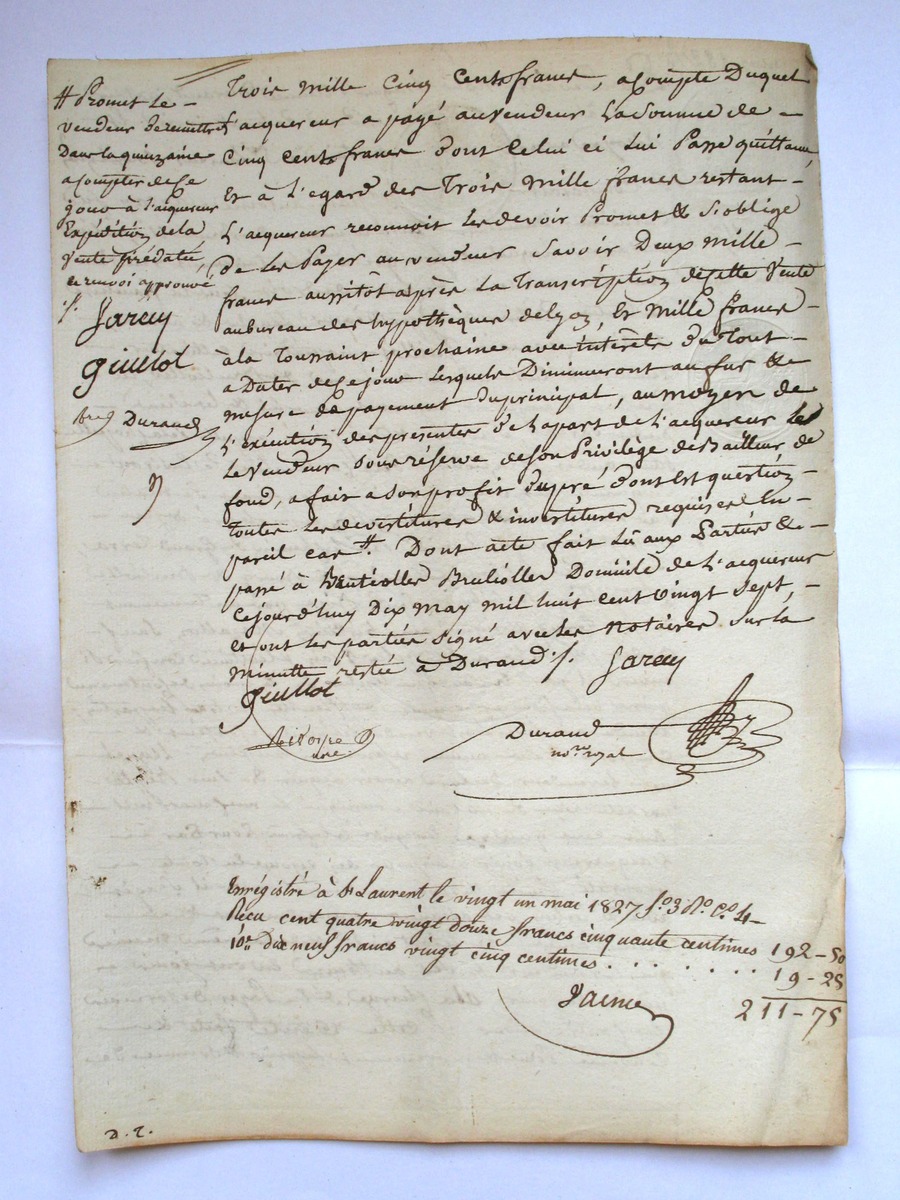 # Promet le -
vendeur de remettre
Dans la quinzaine
a Compter de Ce
jour à l'aquereur
Expédition de la
Vente prédatée
ce renvoi approuvé
Sarcey
giullot
Durand
Trois mille Cinq Cents francs, a Compte Duquel
l'acquereur a payé au vendeur La Somme de -
Cinq Cents francs dont Celui ci Lui Passe quittance
Et à L'egard des Trois mille francs restant -
L'acquereur reconnoit Les devoir Promet & S'oblige
de Les Payer au vendeur Savoir Deux mille -
francs aussitôt après La Transcription de cette Vente
au bureau des hypothèques de Lyon, Et Mille francs -
à la Toussaint prochaine avec intérêts du Tout -
a Dater de Ce jour Lesquels Diminueront au fur & a
mesure de payement du principal, au moyen de
L'exécution des presentes de La part de L'acquereur
Le Vendeur Sous réserve de Son Privilège de Bailleur de
fond, a fait a Son profit du pré dont Est question -
Toutes Les devestitures & investitures requises En
pareil cas #. Dont acte fait Lû aux Parties & -
passé à Domicile de L'acquereur
Cejourd'huy Dix may mil huit cent vingt Sept, -
et ont les parties Signé avec les Notaires Sur la
minutte restée à Durand ./. Sarcey
giullot
Durand
no.re royal
Enrégistré à St Laurent le vingt un mai 1827 f.o 3 R.o C.es 4-
Recu cent quatre vingt douze francs cinquante centimes 192-50
10e dix neuf francs vingt cinq centimes . . . . . . . 19-25
211-75
D. T.